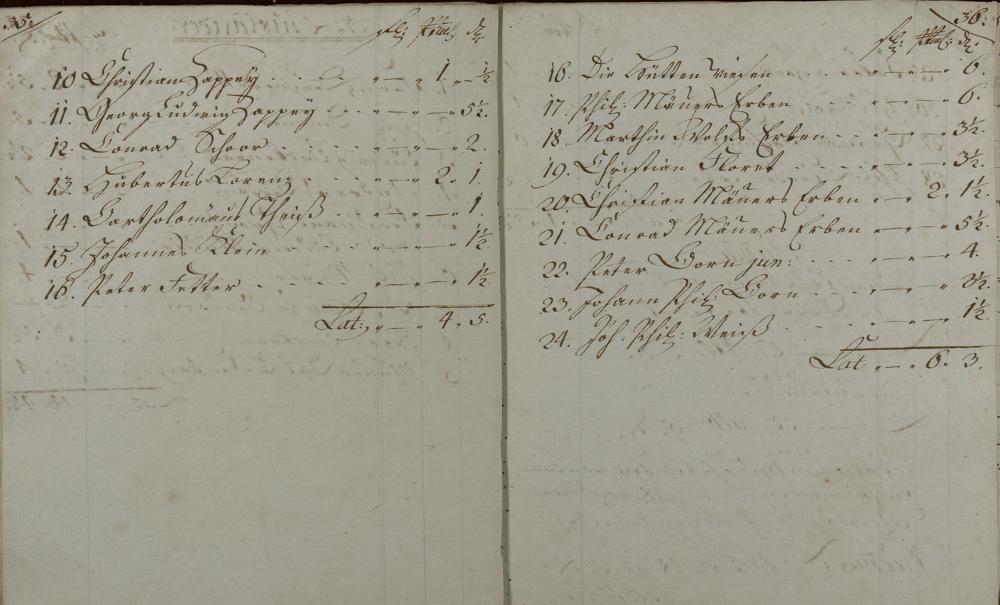 35.
fl: d.
10. Christian Zappeÿ . . . „ — „ 1. „ ½
11. Georg Ludwig Zappeÿ . . „ — „ — „ 5½
12. Conrad Schoor . . . „ — „ — „ 2.
13. Hubertus Lorenz . . . „ — „ 2. 1.
14. Bartholomäus Theiß . . „ — „ — „ 1.
15. Johannes Klein . . . „ — „ — „ 1½
16. Peter Fetter . . . . „ — „ — „ 1½
Lat: „ — „ 4 „ 5.
36.
fl: d.
16. Die . . . „ — „ — „ 6.
17. Phil: Mäurers Erben . . „ — „ — „ 6.
18. Marthin Erben . . „ — „ — „ 3½.
19. Christian Floret . . . „ — „ — „ 3½.
20. Christian Mäurers Erben „ — „ 2. 1½.
21. Conrad Mäurers Erben „ — „ — „ 5½
22. Peter Born jun: . . . „ — „ — „ 4.
23. Johann Phil: Born . . . „ — „ — „ 3½
24. Joh: Phil: Weiß . . . „ — „ — „ 1½.
Lat „ — „ 6. 3.